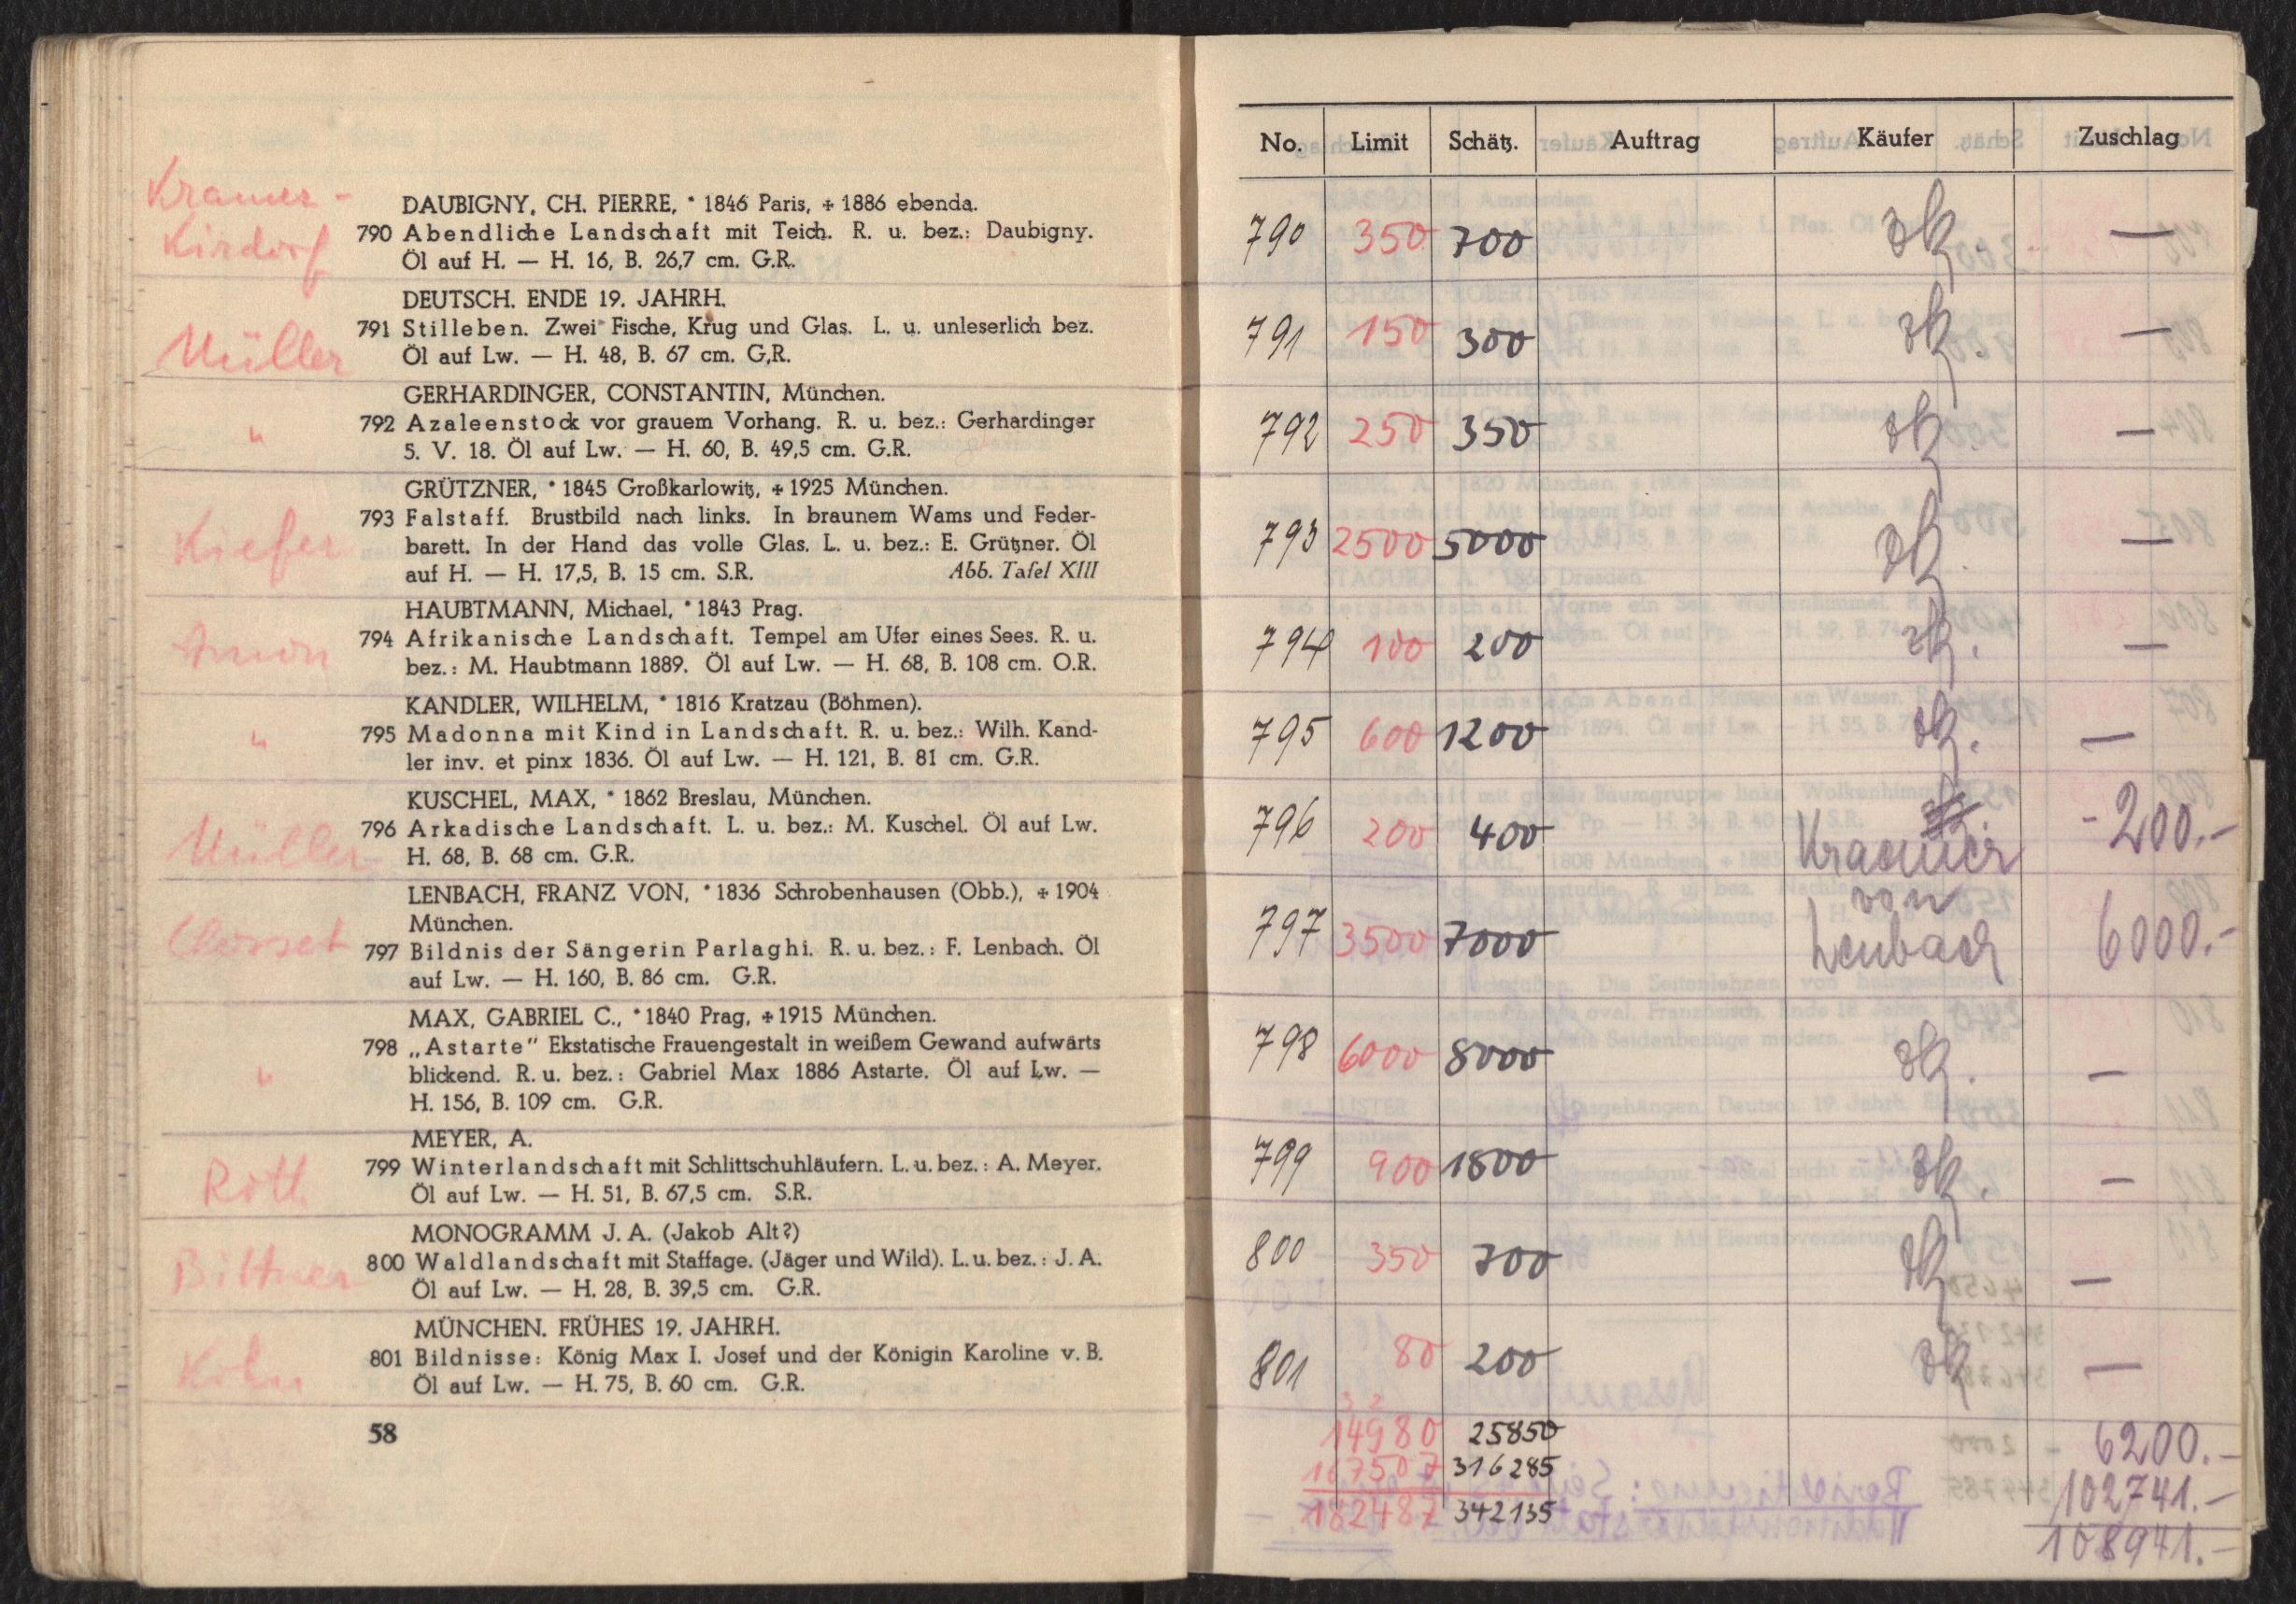 Kramer-
Kirdorf
DAUBIGNY, CH. PIERRE, * 1846 Paris, + 1886 ebenda.
790 Abendliche Landschaft mit Teich. R. u. bez.: Daubigny.
Öl auf H. — H. 16, B. 26,7 cm. G.R.
Müller
DEUTSCH. ENDE 19. JAHRH.
791 Stilleben. Zwei Fische, Krug und Glas. L. u. unleserlich bez.
Öl auf Lw. — H. 48, B. 67 cm. G.R.
"
GERHARDINGER, CONSTANTIN, München.
792 Azaleenstock vor grauem Vorhang. R. u. bez.: Gerhardinger
5. V. 18. Öl auf Lw. — H. 60, B. 49,5 cm. G.R.
Kiefer
GRÜTZNER, * 1845 Großkarlowitz, + 1925 München.
793 Falstaff. Brustbild nach links. In braunem Wams und Feder-
barett. In der Hand das volle Glas. L. u. bez.: E. Grützner. Öl
auf H. — H. 17,5, B. 15 cm. S.R. Abb. Tafel XIII
HAUBTMANN, Michael, * 1843 Prag.
794 Afrikanische Landschaft. Tempel am Ufer eines Sees. R. u.
bez.: M. Haubtmann 1889. Öl auf Lw. — H. 68, B. 108 cm. O.R.
"
KANDLER, WILHELM, * 1816 Kratzau (Böhmen).
795 Madonna mit Kind in Landschaft. R. u. bez.: Wilh. Kand-
ler inv. et pinx 1836. Öl auf Lw. — H. 121, B. 81 cm. G.R.
Müller
KUSCHEL, MAX, * 1862 Breslau, München.
796 Arkadische Landschaft. L. u. bez.: M. Kuschel. Öl auf Lw.
H. 68, B. 68 cm. G.R.
Closset
LENBACH, FRANZ VON, * 1836 Schrobenhausen (Obb.), + 1904
München.
797 Bildnis der Sängerin Parlaghi. R. u. bez.: F. Lenbach. Öl
auf Lw. — H. 160, B. 86 cm. G.R.
"
MAX, GABRIEL C., * 1840 Prag, + 1915 München.
798 „Astarte" Ekstatische Frauengestalt in weißem Gewand aufwärts
blickend. R. u. bez.: Gabriel Max 1886 Astarte. Öl auf Lw. —
H. 156, B. 109 cm. G.R.
Roth
MEYER, A.
799 Winterlandschaft mit Schlittschuhläufern. L. u. bez.: A. Meyer.
Öl auf Lw. — H. 51, B. 67,5 cm. S.R.
Bittner
MONOGRAMM J. A. (Jakob Alt?)
800 Waldlandschaft mit Staffage. (Jäger und Wild). L. u. bez.: J. A.
Öl auf Lw. — H. 28, B. 39,5 cm. G.R.
MÜNCHEN. FRÜHES 19. JAHRH.
801 Bildnisse: König Max I. Josef und der Königin Karoline v. B.
Öl auf Lw. — H. 75, B. 60 cm. G.R.
58
No. Limit Schätz. Auftrag Käufer Zuschlag
790 350 700 —
791 150 300 —
792 250 350 —
793 2500 5000 —
794 100 200 —
795 600 1200 —
796 200 400 Kraemer - 200.-
797 3500 7000 von Lenbach 6000.-
798 6000 8000 —
799 900 1800 —
800 350 700 —
801 80 200 —
14980 25850 6200.-
167507 316285 102741.-
182487 342135 108941.-